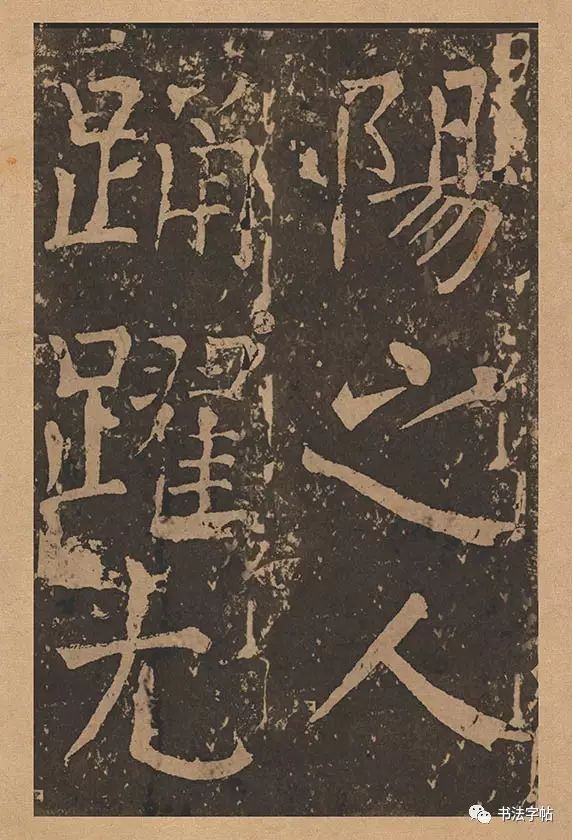 陽之人
踊躍
书法字帖